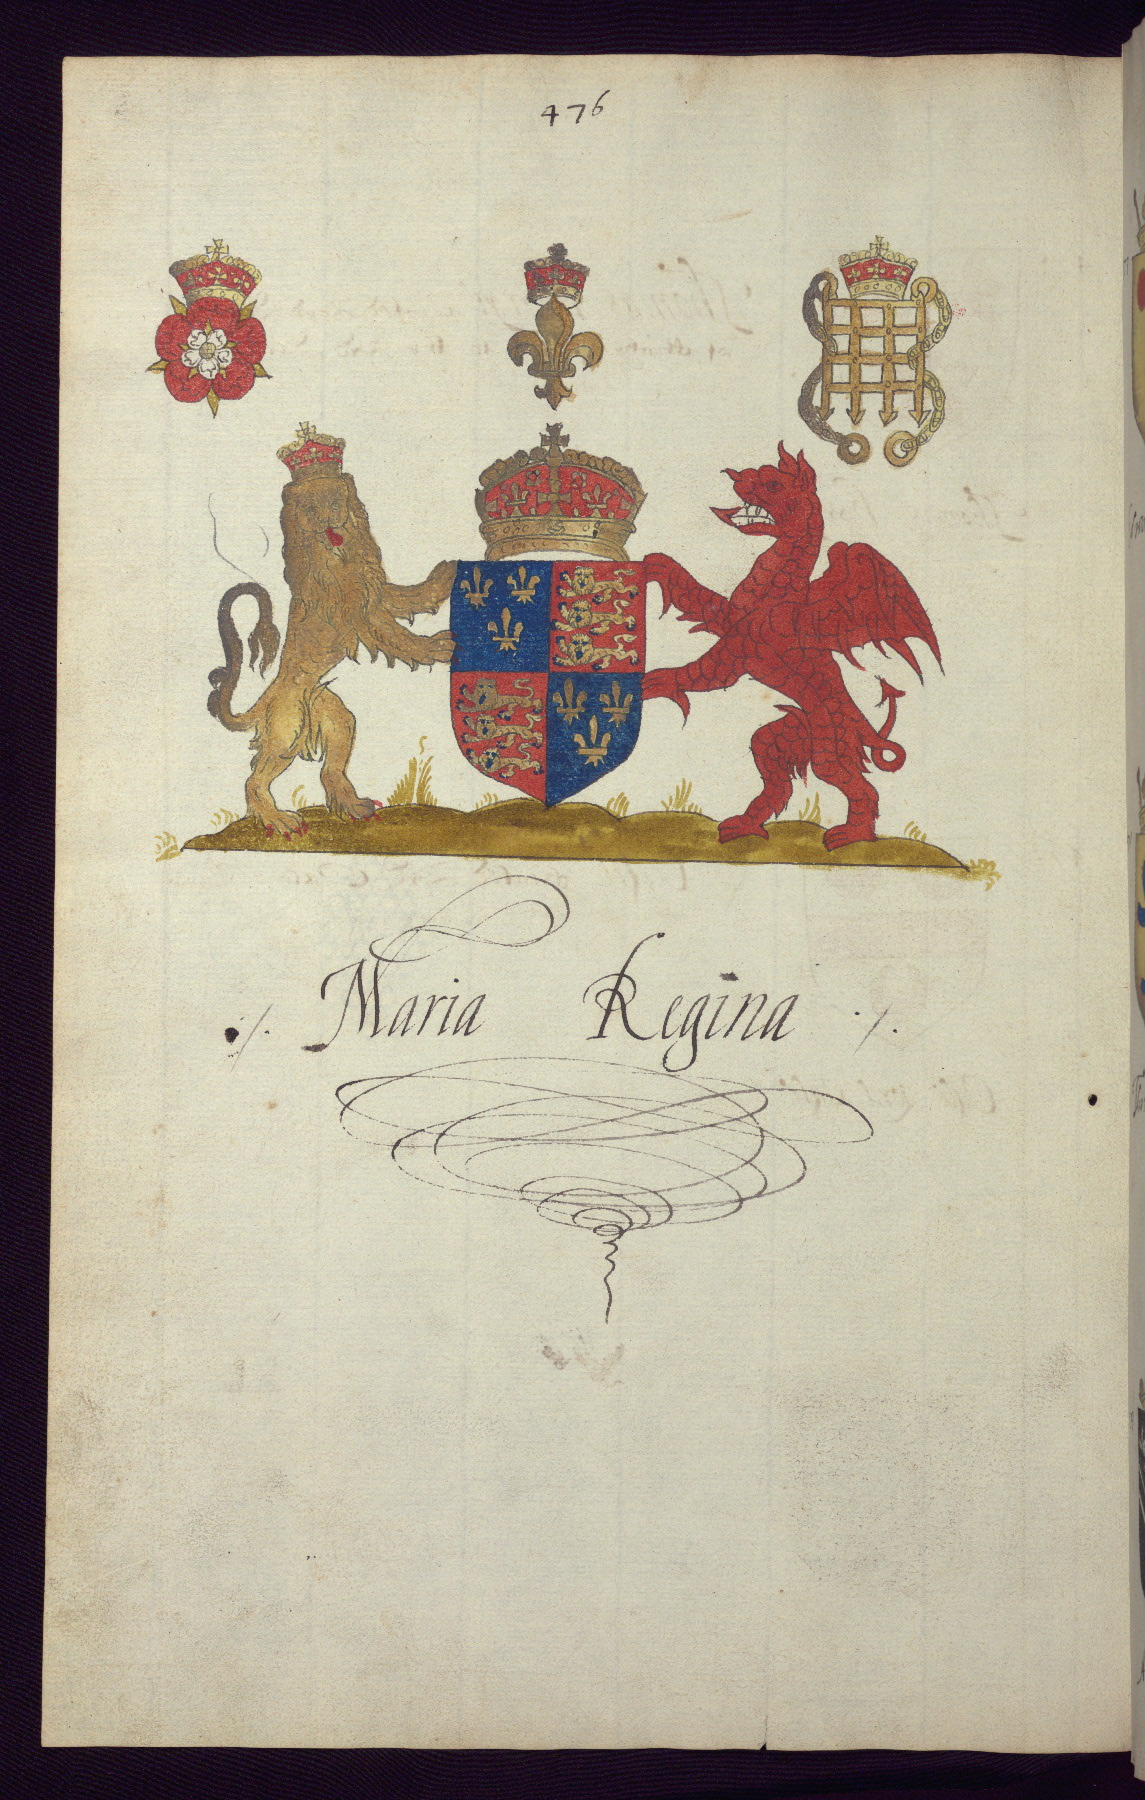 476
·/. Maria Regina ·/.